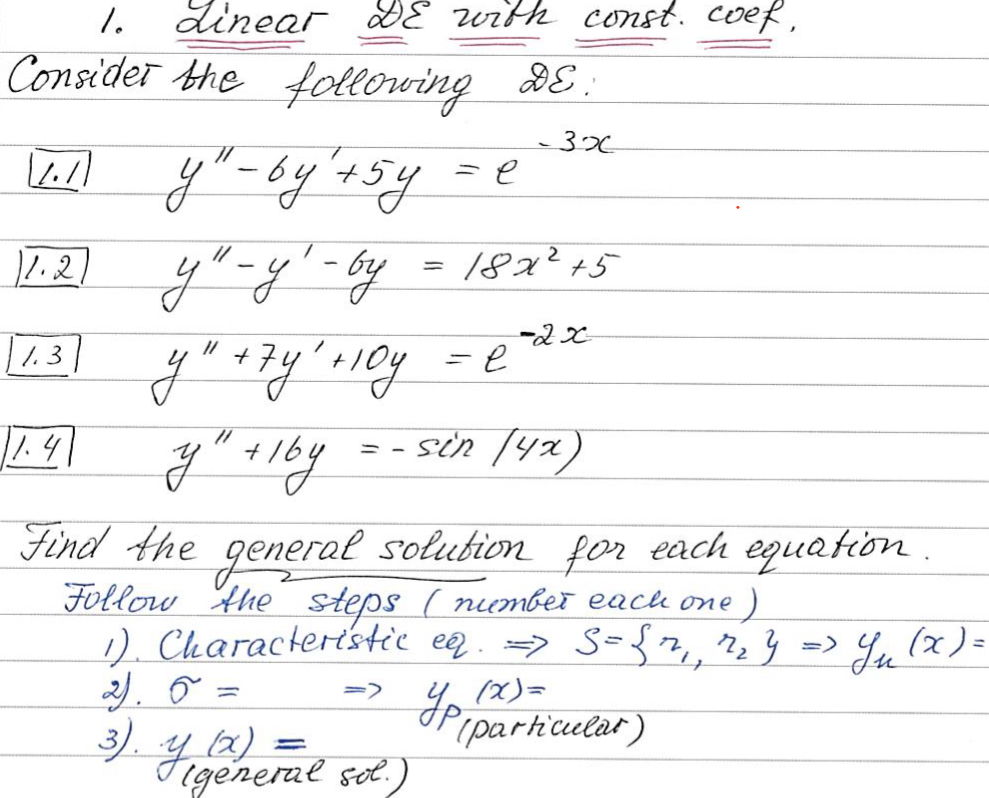 1. Linear DE with const. coef.
Consider the following DE:
1.1 y'' - 6y' + 5y = e^{-3x}
1.2 y'' - y' - 6y = 18x² + 5
1.3 y'' + 7y' + 10y = e^{-2x}
1.4 y'' + 16y = - sin (4x)
Find the general solution for each equation.
Follow the steps (number each one)
1). Characteristic eq. => S = {r₁, r₂} => y_H (x) =
2). σ = => y_p (x) =
(particular)
3). y (x) =
(general sol.)